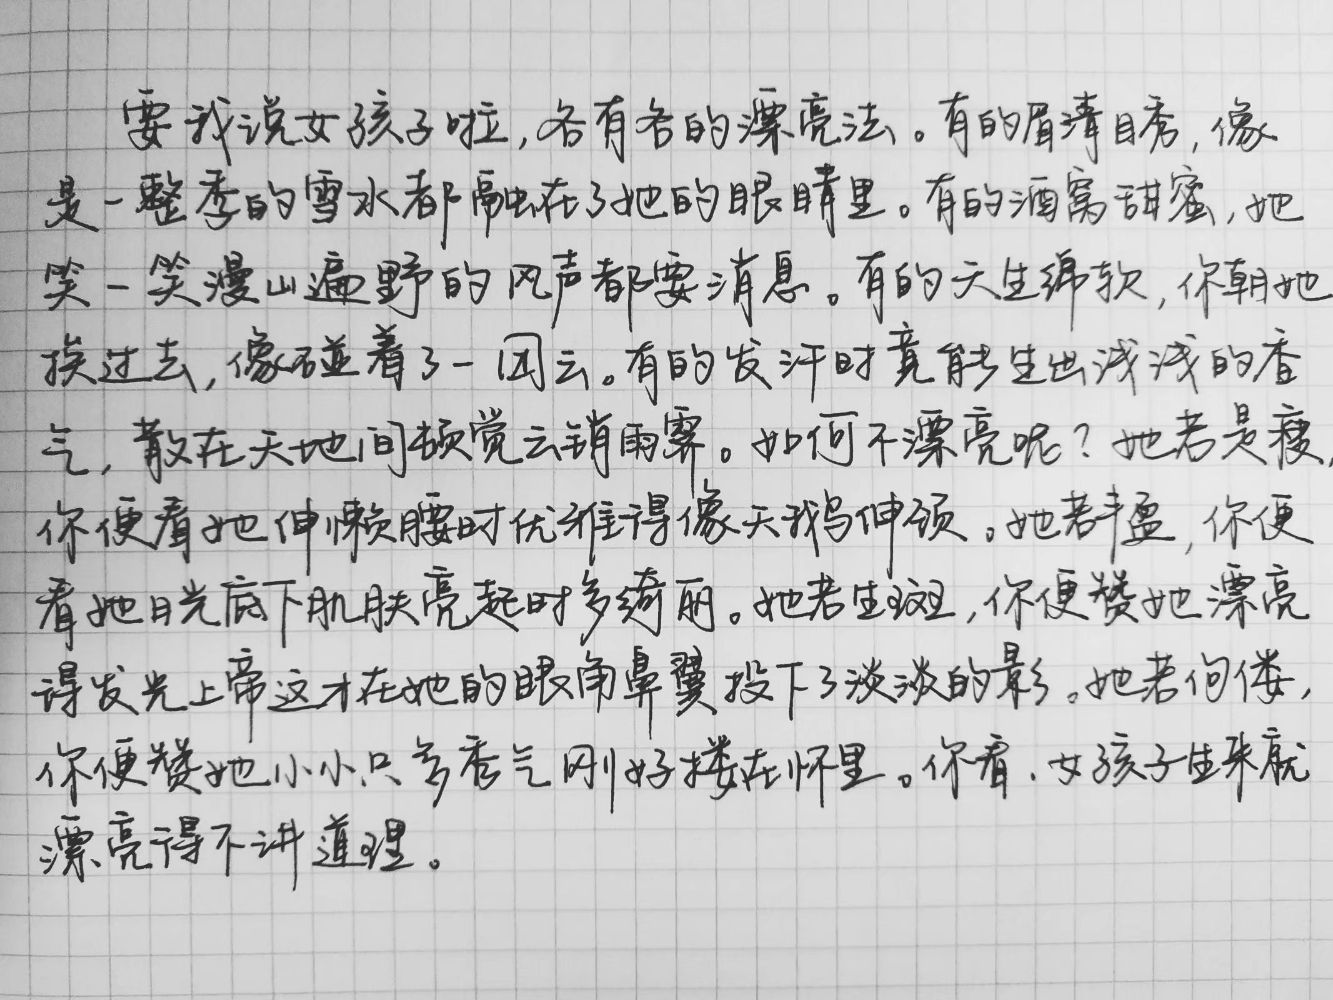 要我说女孩子啦，各有各的漂亮法。有的眉清目秀，像
是一整季的雪水都融在了她的眼睛里。有的酒窝甜蜜，她
笑一笑漫山遍野的风声都要消息。有的天生绵软，你朝她
挨过去，像碰着了一团云。有的发汗时竟能生出浅浅的香
气，散在天地间顿觉云销雨霁。如何不漂亮呢？她若是瘦，
你便看她伸懒腰时优雅得像天鹅伸颈。她若丰盈，你便
看她日光底下肌肤亮起时多绮丽。她若生斑，你便赞她漂亮
得发光上帝这才在她的眼角鼻翼投下了淡淡的影。她若佝偻，
你便赞她小小只多秀气刚好搂在怀里。你看，女孩子生来就
漂亮得不讲道理。